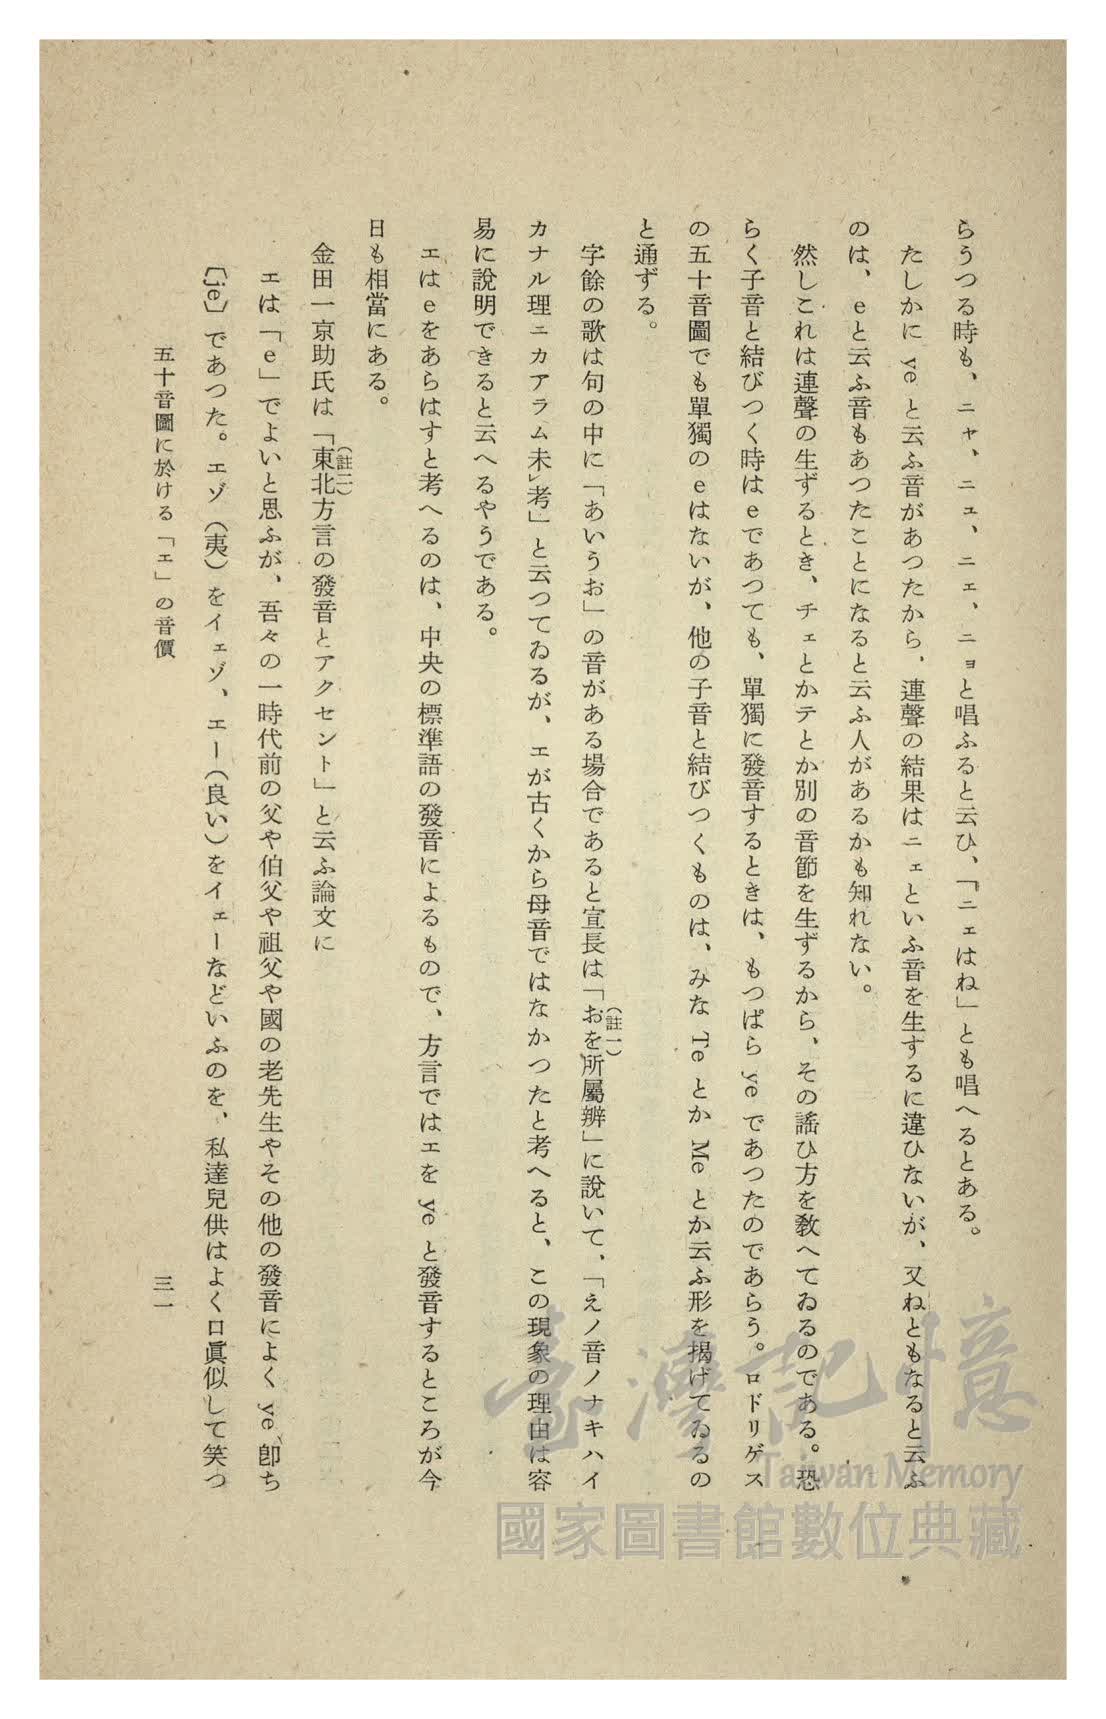 らうつる時も、ニャ、ニュ、ニェ、ニョと唱ふると云ひ、「ニェはね」とも唱へるとある。
たしかに ye と云ふ音があつたから、連聲の結果はニェといふ音を生するに違ひないが、又ねともなると云ふ
のは、eと云ふ音もあつたことになると云ふ人があるかも知れない。
然しこれは連聲の生ずるとき、チェとかテとか別の音節を生ずるから、その謠ひ方を敎へてゐるのである。恐
らく子音と結びつく時はeであつても、單獨に發音するときは、もつぱら ye であつたのであらう。ロドリゲス
の五十音圖でも單獨のeはないが、他の子音と結びつくものは、みな Te とか Me とか云ふ形を揭げてゐるの
と通ずる。
字餘の歌は句の中に「あいうお」の音がある場合であると宣長は「おを所屬辨」に說いて、「えノ音ノナキハイ
(註一)
カナル理ニカアラム未レ考」と云つてゐるが、エが古くから母音ではなかつたと考へると、この現象の理由は容
易に說明できると云へるやうである。
エはeをあらはすと考へるのは、中央の標準語の發音によるもので、方言ではエを ye と發音するところが今
日も相當にある。
金田一京助氏は「東北方言の發音とアクセント」と云ふ論文に
(註二)
エは「e」でよいと思ふが、吾々の一時代前の父や伯父や祖父や國の老先生やその他の發音によく ye 卽ち
〔je〕であつた。エゾ(夷)をイェゾ、エー(良い)をイェーなどいふのを、私達兒供はよく口眞似して笑つ
五十音圖に於ける「エ」の音價
三一
臺灣記憶
Taiwan Memory
國家圖書館數位典藏